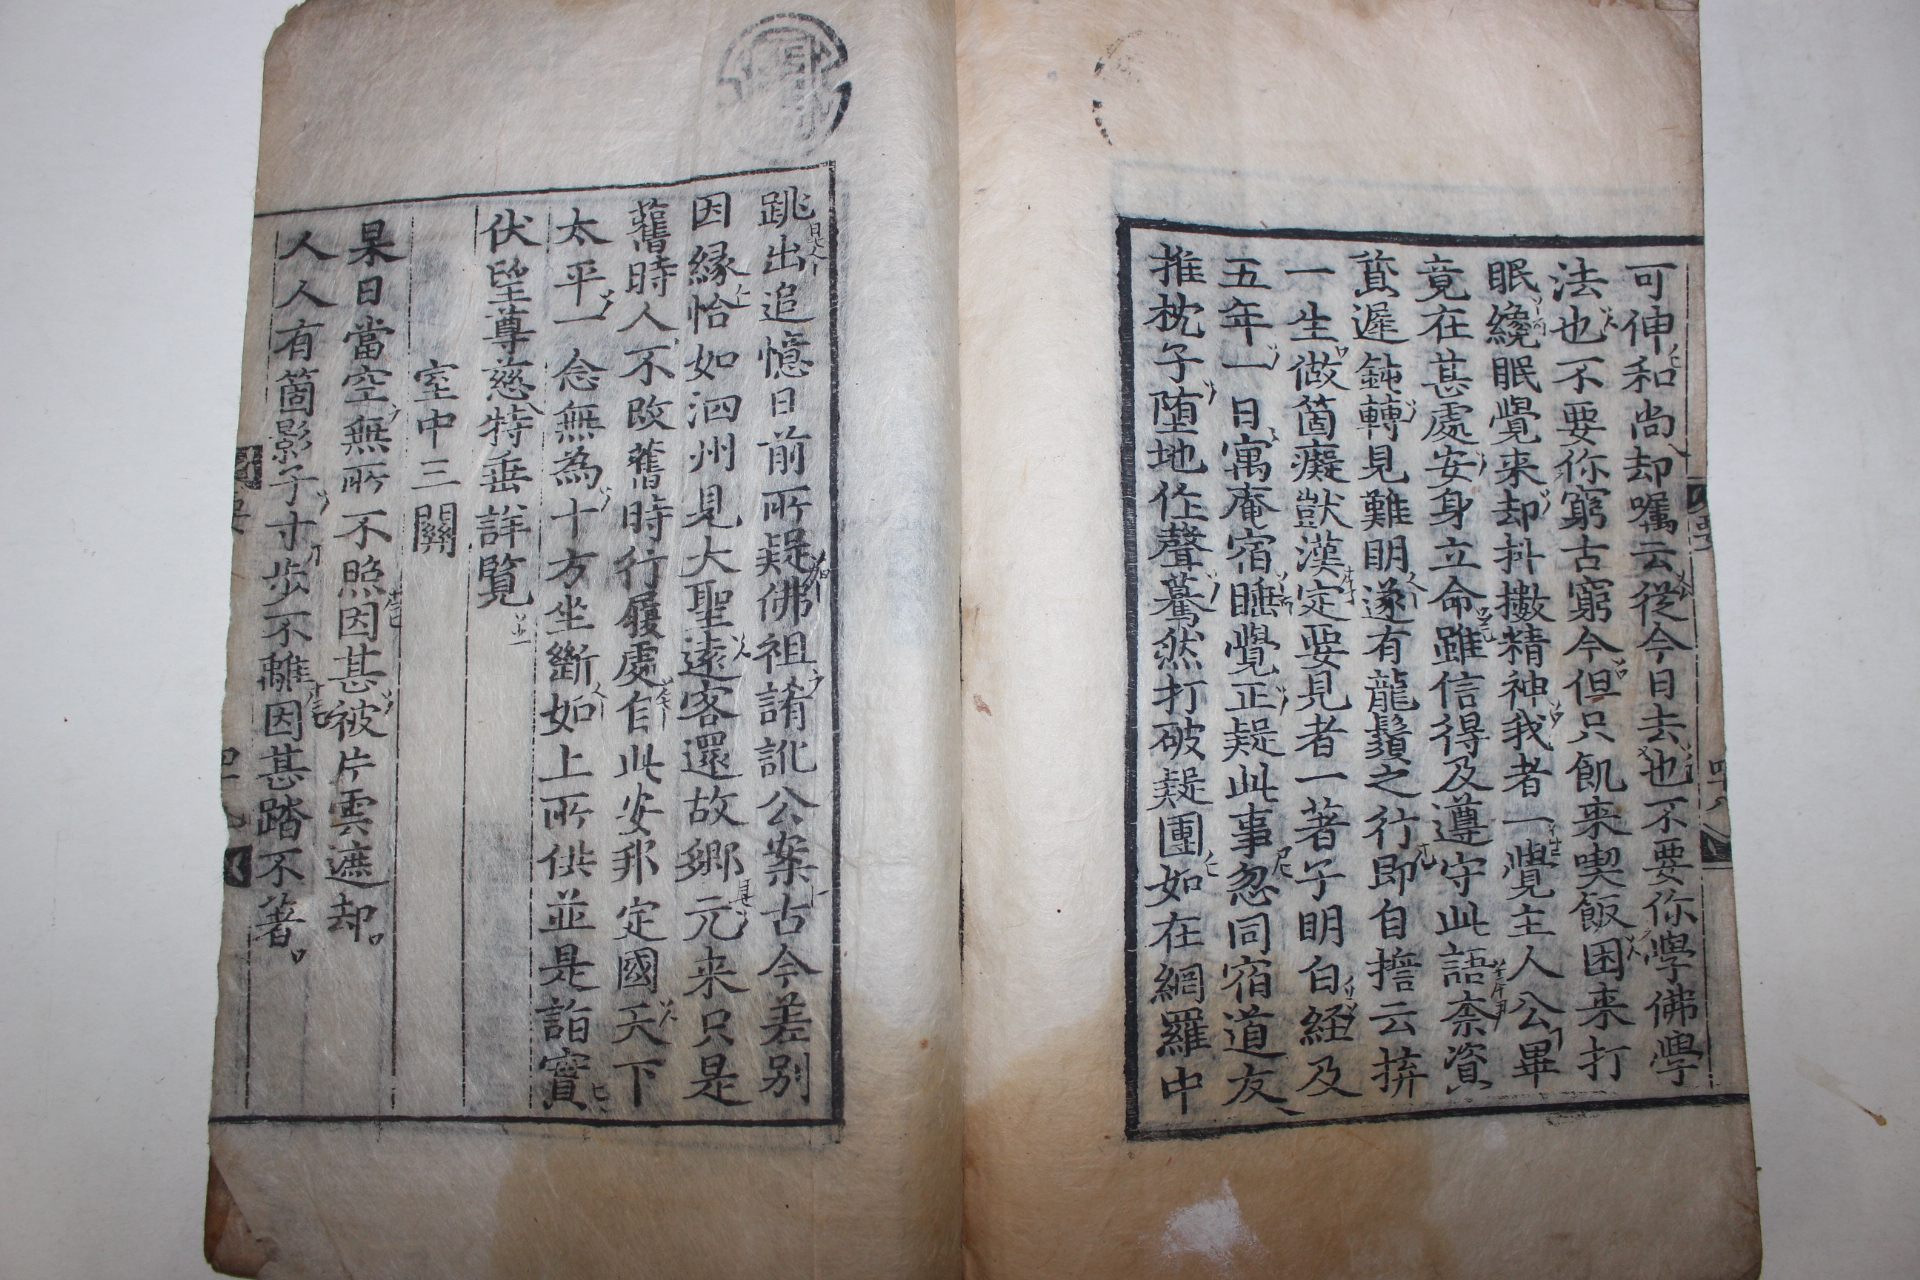 可伸和尚却囑云從今日去也不要你學佛學
法也不要你窮古窮今但只飢来喫飯困来打
眠纔眠覺来却抖擻精神我者一覺主人公畢
竟在甚處安身立命雖信得及遵守此語柰資
貭遲鈍轉見難明遂有龍鬚之行即自擔云拚
一生做箇癡獃漢定要見者一著子明白経及
五年一日寓庵宿睡覺正疑此事忽同宿道友
推枕子堕地作聲驀然打破疑團如在網羅中
跳出追憶日前所疑佛祖誵訛公案古今差別
因縁恰如泗州見大聖遠客還故鄉元来只是
舊時人不改舊時行履處自此安邦定國天下
太平一念無為十方坐斷如上所供並是詣實
伏望尊慈特垂詳覽
室中三關
杲日當空無所不照因甚被片雲遮却。
人人有箇影子寸步不離因甚踏不著。